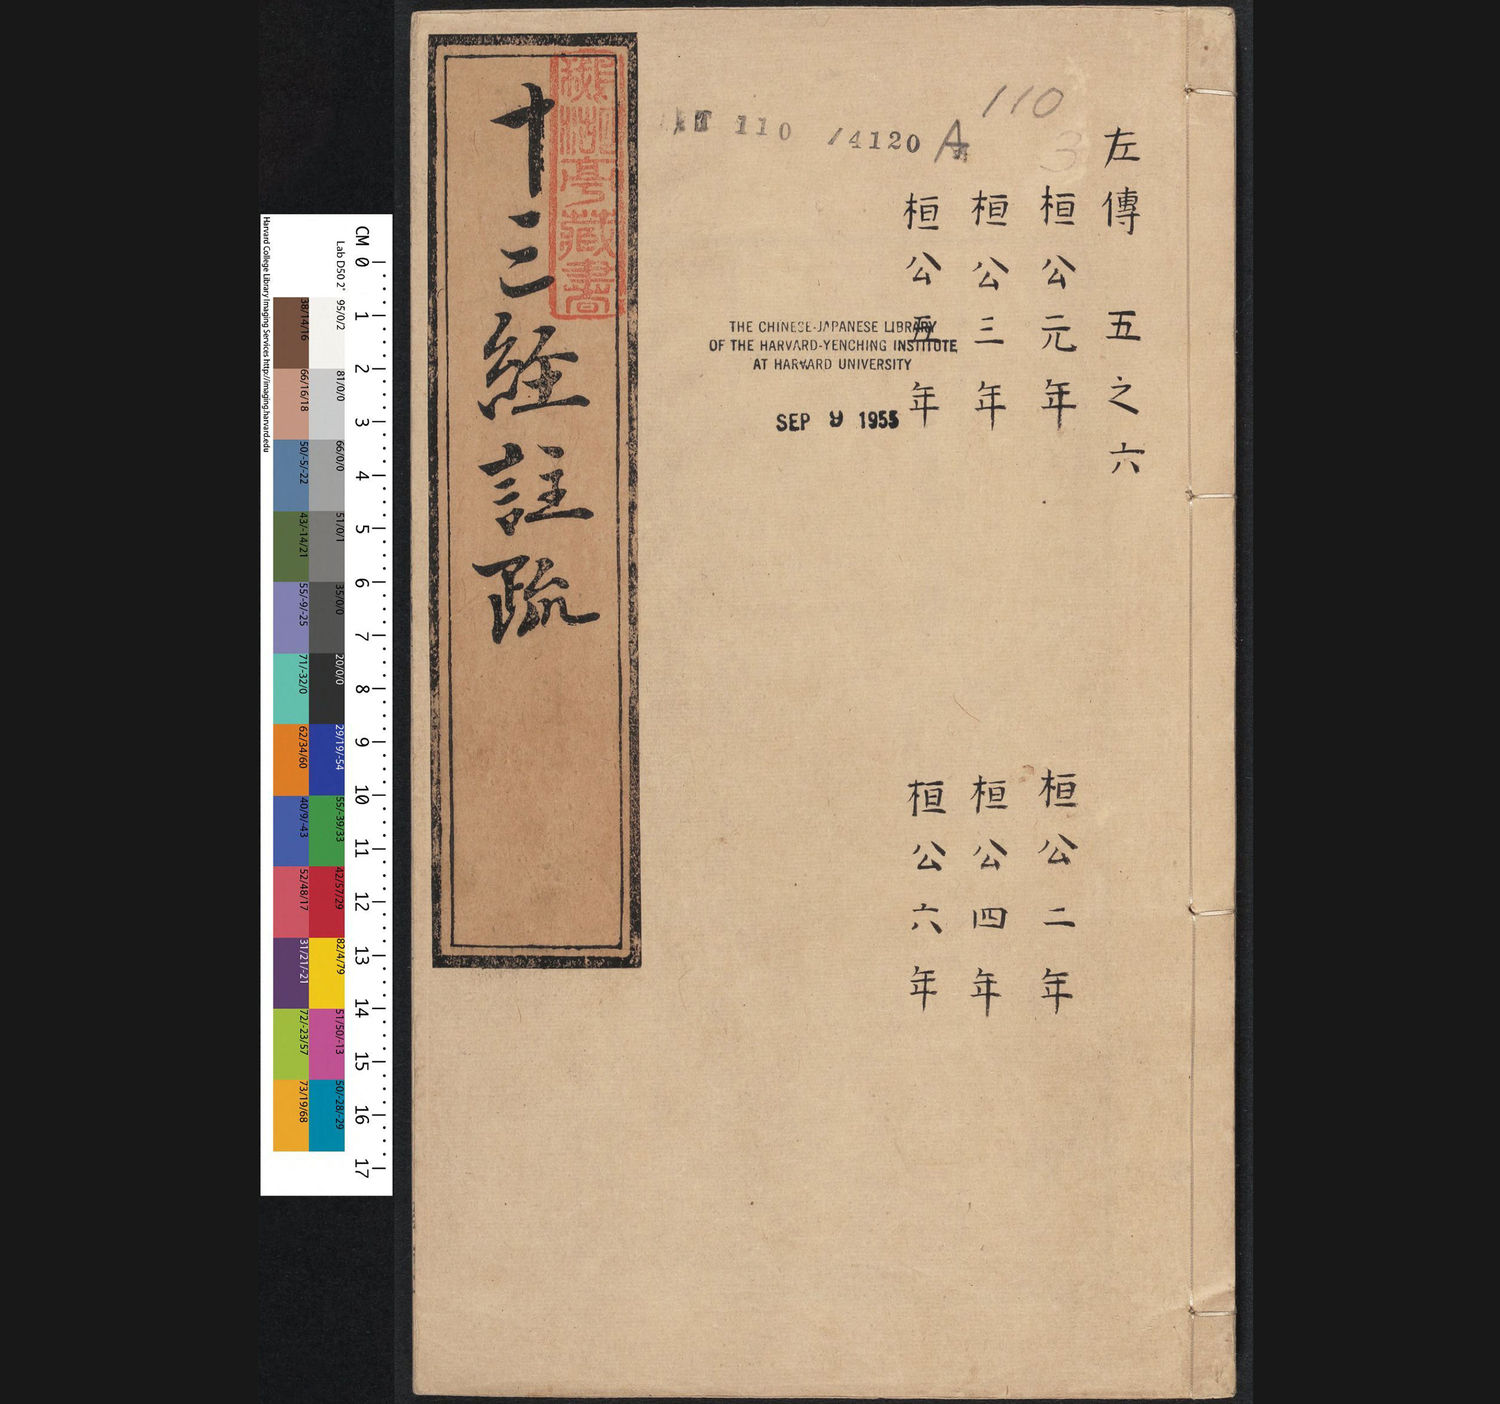 左傳 五之六
桓公元年 桓公二年
桓公三年 桓公四年
桓公五年 桓公六年
110
3
110 /4120 A
THE CHINESE-JAPANESE LIBRARY
OF THE HARVARD-YENCHING INSTITUTE
AT HARVARD UNIVERSITY
SEP 9 1955
十三經註疏
亭藏書
CM 0 1 2 3 4 5 6 7 8 9 10 11 12 13 14 15 16 17
Lab D50 2°
95/0/2
81/0/0
66/0/0
51/0/1
35/0/0
20/0/0
29/19/-54
55/-39/33
42/57/29
82/4/79
51/50/-13
50/-28/-29
38/14/16
66/16/18
50/-5/-22
43/-14/21
55/-9/-25
71/-32/0
62/34/60
40/9/-43
52/48/17
31/21/-21
72/-23/57
73/19/68
Harvard College Library Imaging Services http://imaging.harvard.edu